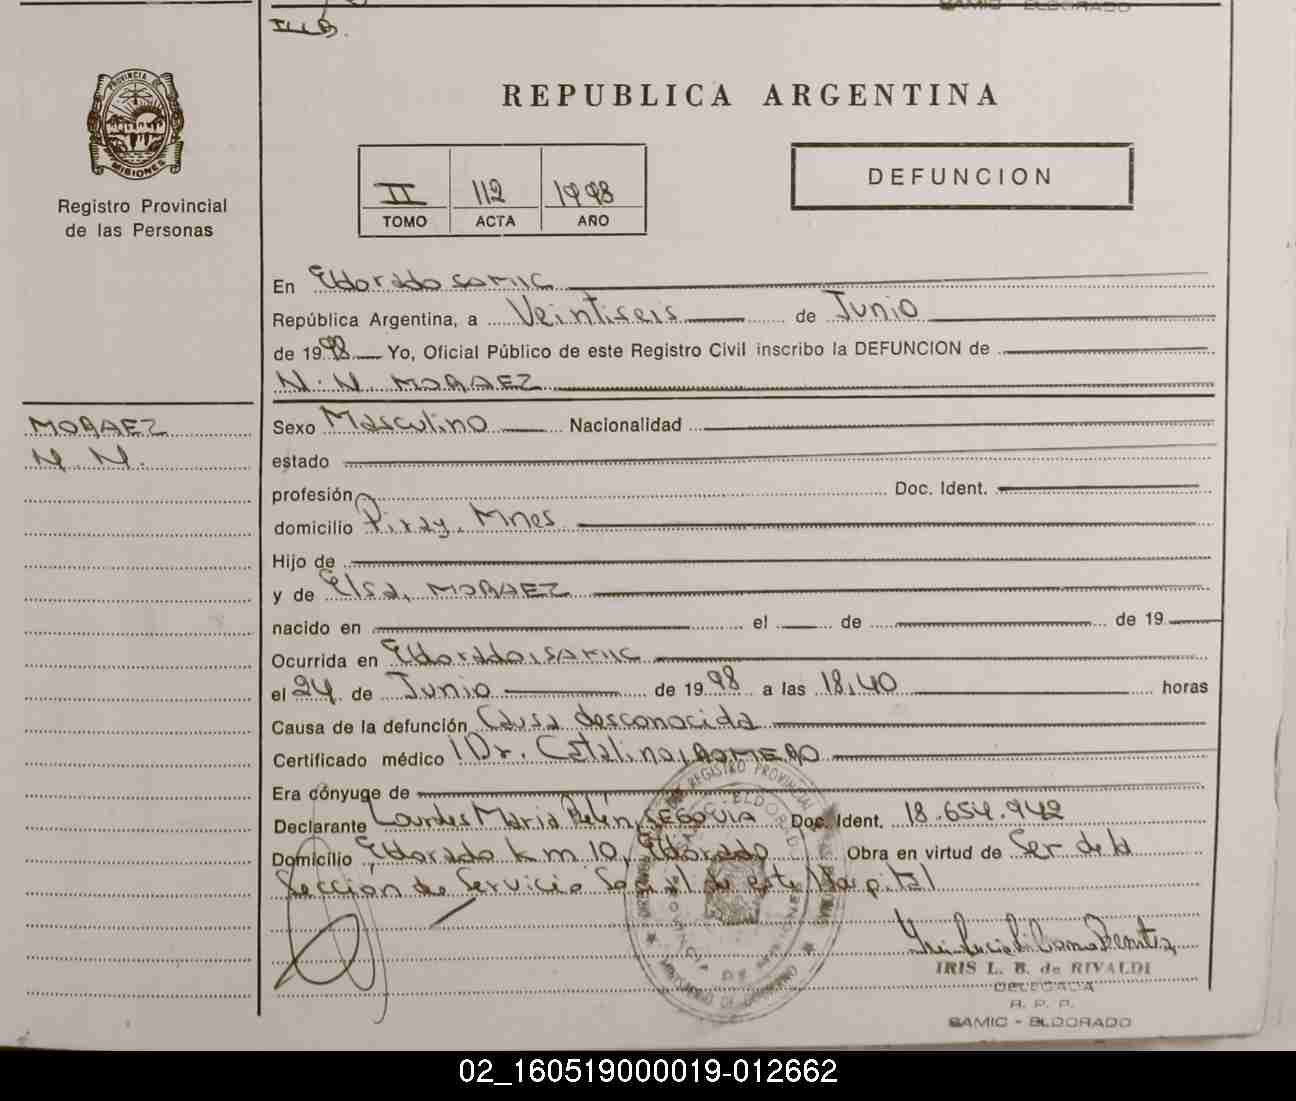 SAMIC - ELDORADO
I.L.B.
PROVINCIA DE
MISIONES
Registro Provincial
de las Personas
REPUBLICA ARGENTINA
II 112 1998
TOMO ACTA AÑO
DEFUNCION
En Eldorado SAMIC
República Argentina, a Veintiseis de Junio
de 1998 Yo, Oficial Público de este Registro Civil inscribo la DEFUNCION de
N. N. MORAEZ
MORAEZ
N. N.
Sexo Masculino Nacionalidad
estado
profesión Doc. Ident.
domicilio Piray, Mnes
Hijo de
y de Elsa, MORAEZ
nacido en el de de 19
Ocurrida en Eldorado, SAMIC
el 24 de Junio de 1998 a las 18,40 horas
Causa de la defunción Causa desconocida
Certificado médico Dr. Catalina, ROMERO
Era cónyuge de
Declarante Lourdes María Belén, SEGOVIA Doc. Ident. 18.654.942
Domicilio Eldorado km 10, Eldorado Obra en virtud de Ser de la
Sección de Servicio Social de este Hospital
REGISTRO PROVINCIAL
ELDORADO
PROVINCIA DE MISIONES
MINISTERIO DE GOBIERNO
IRIS L. B. de RIVALDI
DELEGADA
R. P. P.
SAMIC - ELDORADO
02_160519000019-012662